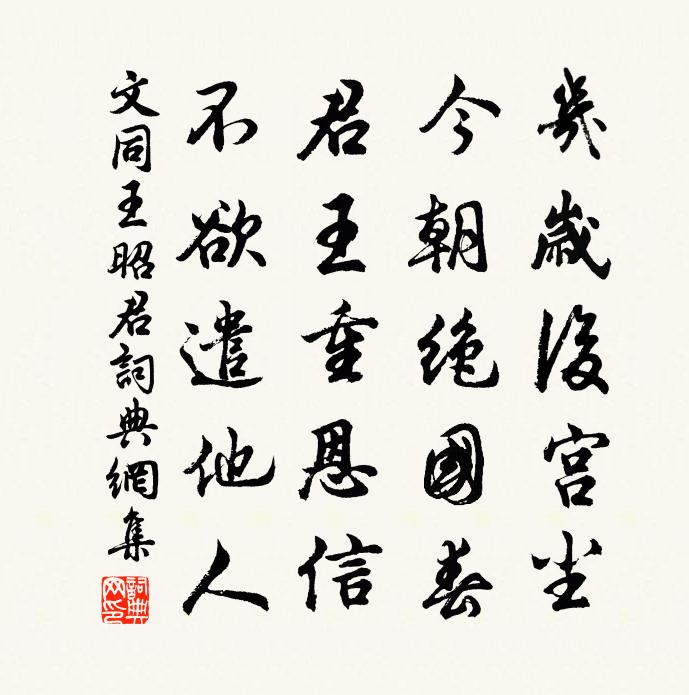 幾歲後宮塵
今朝絕國春
君王重恩信
不欲遣他人
文同王昭君詞典網集
詞典網印